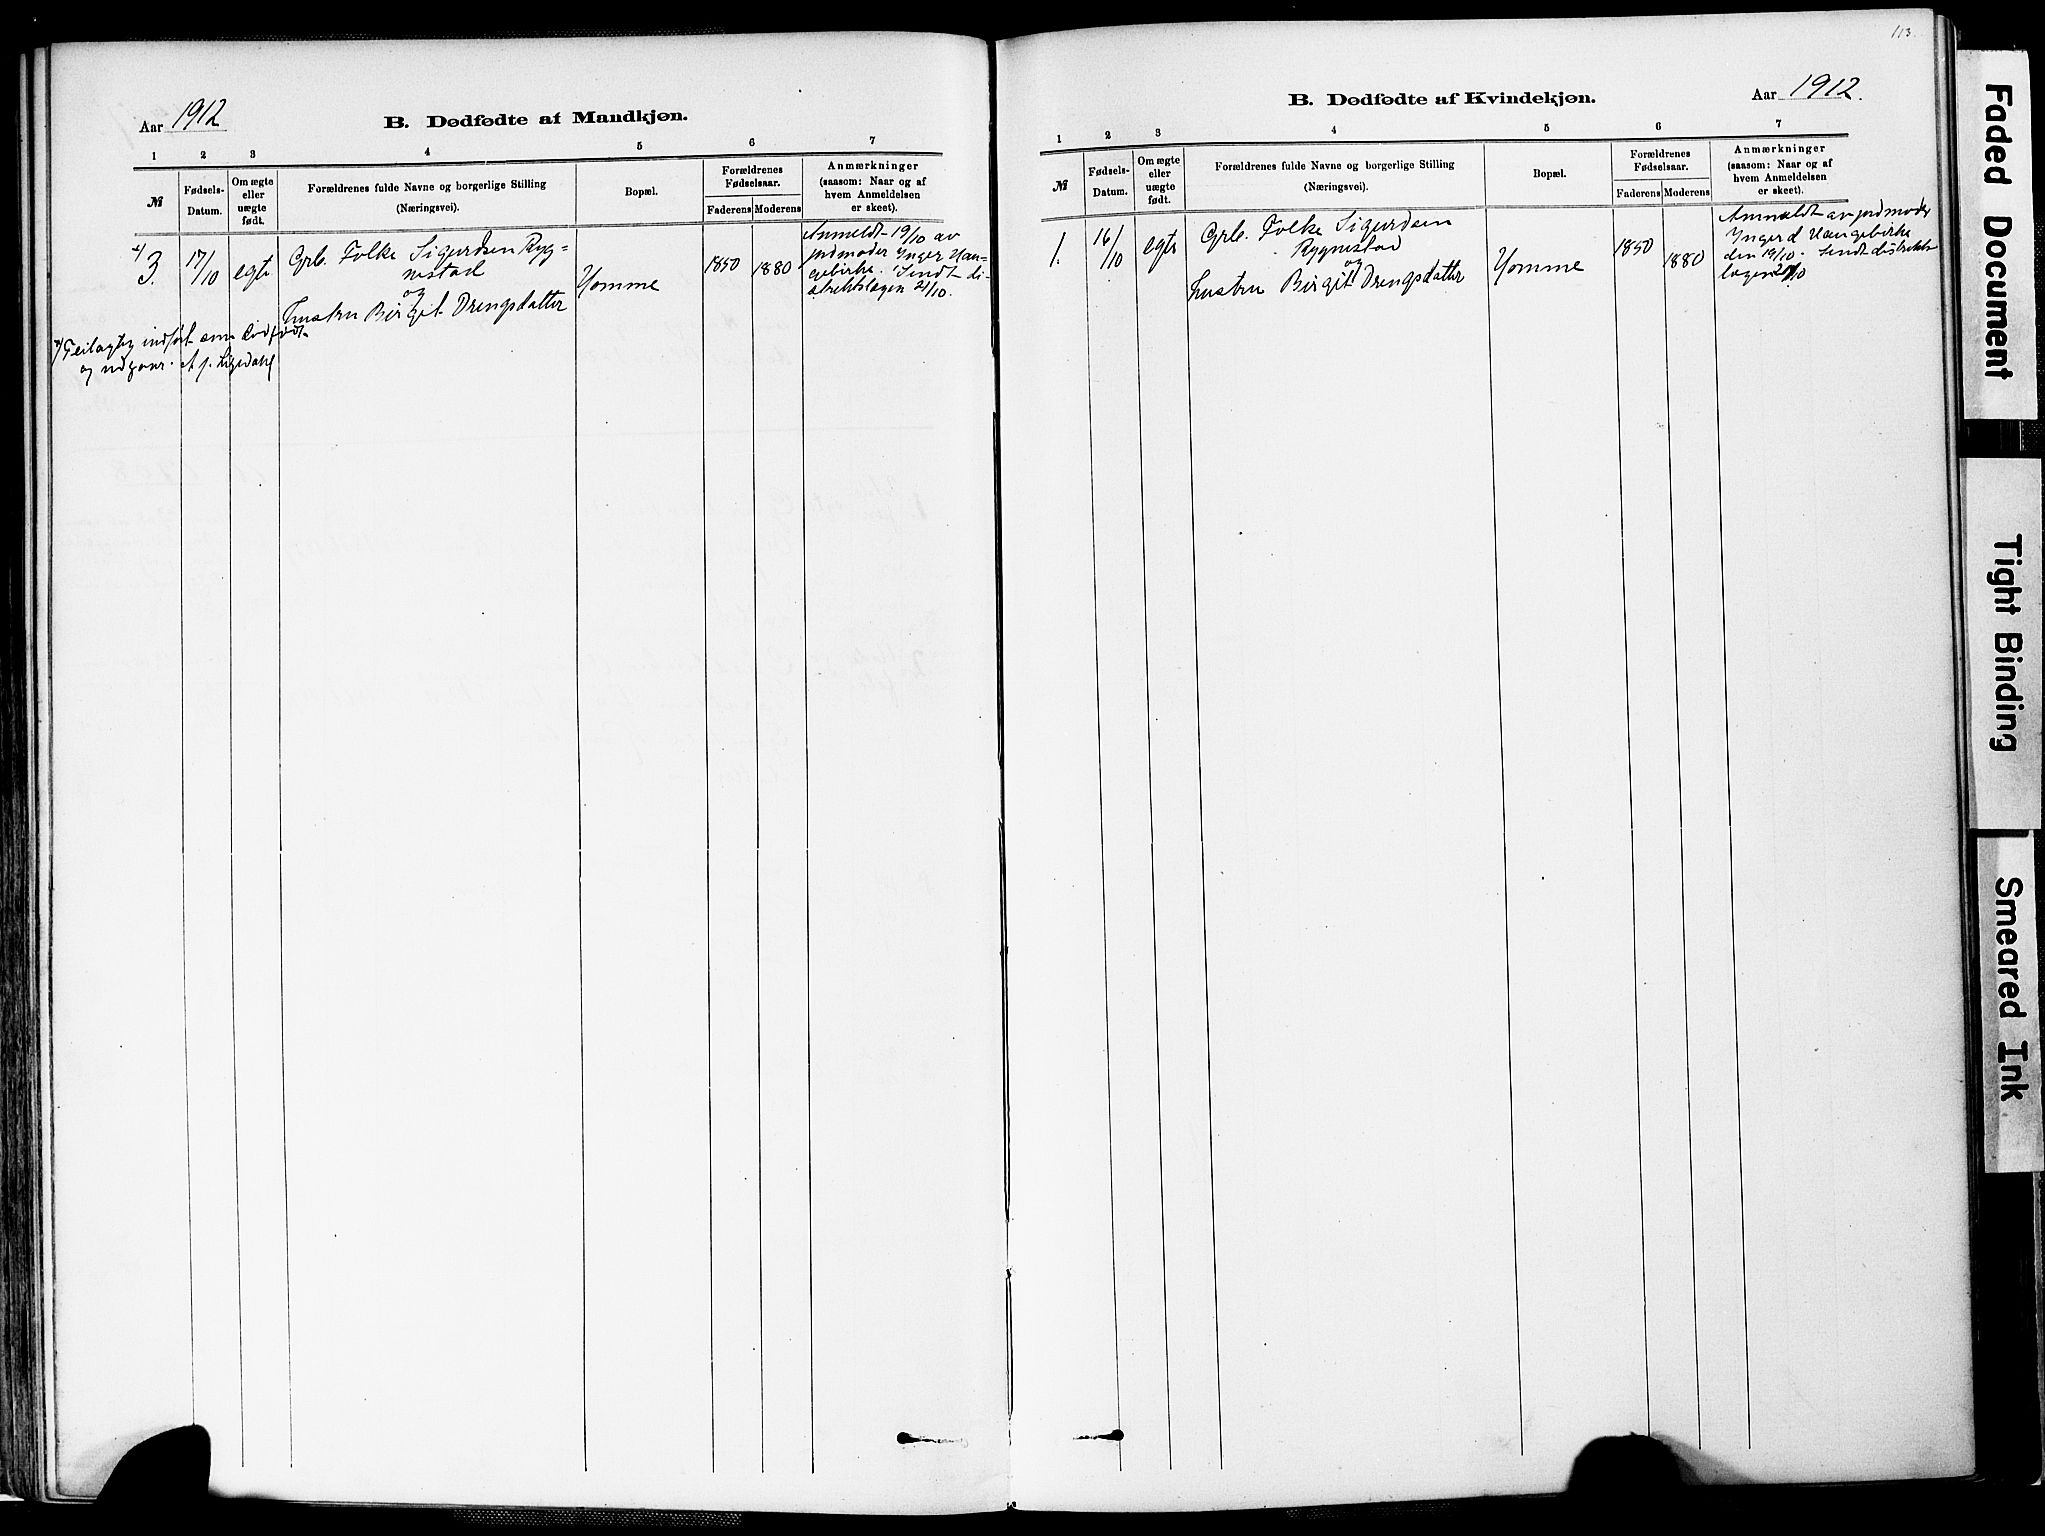 Aar 1912
B. Dødfødte af Mandkjøn.
1 2 3 4 5 6 7
№
Fødsels-
Datum.
Om ægte
eller
uægte
født.
Forældrenes fulde Navne og borgerlige Stilling
(Næringsvei).
Bopæl.
Forældrenes
Fødselsaar.
Faderens Moderens
Anmærkninger
(saasom: Naar og af
hvem Anmeldelsen
er skeet).
3.
17/10
egte
Grb. Folke Sigurdsen Ryg=
nestad
og
hustru Birgit Drengsdatter
Homme
1850
1880
Anmeldt 19/10 av
jordmoder Ynger Hau-
gebirke. Sendt di-
striktslægen 21/10.
Feilagtig indført som dødfødt
og udgaar.
113.
B. Dødfødte af Kvindekjøn.
Aar 1912.
1 2 3 4 5 6 7
№
Fødsels-
Datum.
Om ægte
eller
uægte
født.
Forældrenes fulde Navne og borgerlige Stilling
(Næringsvei).
Bopæl.
Forældrenes
Fødselsaar.
Faderens Moderens
Anmærkninger
(saasom: Naar og af
hvem Anmeldelsen
er skeet).
1.
16/10
egte
Grb. Folke Sigurdsen
Rygnestad
og
hustru Birgit Drengsdatter
Homme
1850
1880
Anmeldt av jordmoder
Yngerd Haugebirke
den 19/10. Sendt distrikts
lægen 21/10
Faded Document
Tight Binding
Smeared Ink